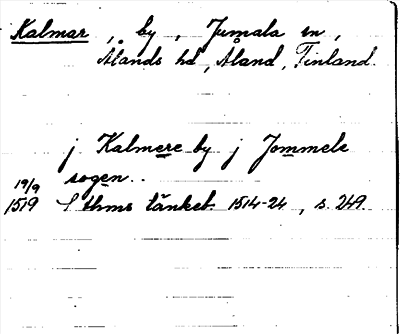 Kalmar, by, Jumala sn,
Ålands hd, Åland, Finland.
j Kalmere by j Jommele
sogen..
19/9
1519 Sthms tänkeb. 1514-24, s. 249.